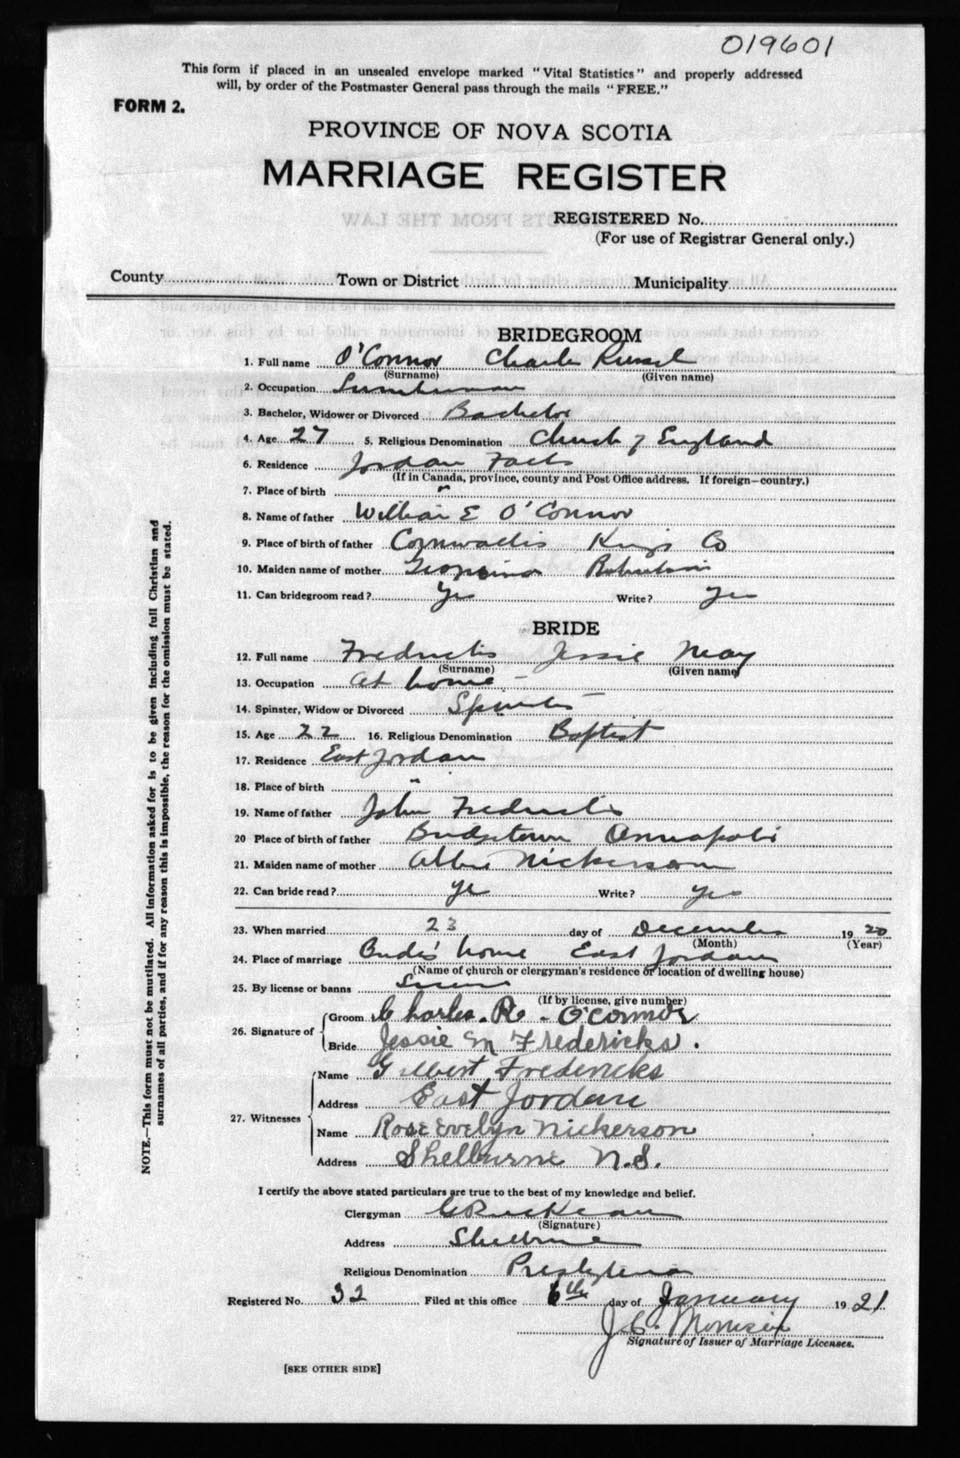 019601
This form if placed in an unsealed envelope marked "Vital Statistics" and properly addressed
will, by order of the Postmaster General pass through the mails "FREE."
FORM 2.
PROVINCE OF NOVA SCOTIA
MARRIAGE REGISTER
REGISTERED No.
(For use of Registrar General only.)
County Town or District Municipality
BRIDEGROOM
1. Full name O'Connor Charles Russel
(Surname) (Given name)
2. Occupation Lumberman
3. Bachelor, Widower or Divorced Bachelor
4. Age 27 5. Religious Denomination Church of England
6. Residence Jordan Falls
(If in Canada, province, county and Post Office address. If foreign—country.)
7. Place of birth "
8. Name of father William E O'Connor
9. Place of birth of father Cornwallis Kings Co
10. Maiden name of mother Robertson
11. Can bridegroom read? Yes Write? Yes
BRIDE
12. Full name Fredericks Jessie May
(Surname) (Given name)
13. Occupation At home
14. Spinster, Widow or Divorced Spinster
15. Age 22 16. Religious Denomination Baptist
17. Residence East Jordan
18. Place of birth "
19. Name of father John Fredericks
20 Place of birth of father Bridgetown Annapolis
21. Maiden name of mother Nickerson
22. Can bride read? Yes Write? Yes
23. When married 23 day of December 1920
(Month) (Year)
24. Place of marriage Bride's home East Jordan
(Name of church or clergyman's residence or location of dwelling house)
25. By license or banns License
(If by license, give number)
26. Signature of
Groom Charles. R. O'Connor
Bride Jessie M Fredericks.
27. Witnesses
Name Gilbert Fredericks
Address East Jordan
Name Rose Evelyn Nickerson
Address Shelburne N.S.
I certify the above stated particulars are true to the best of my knowledge and belief.
Clergyman
(Signature)
Address Shelburne
Religious Denomination Presbyterian
Registered No. 32 Filed at this office 6th day of January 1921
J. C. Morrison
Signature of Issuer of Marriage Licenses.
[SEE OTHER SIDE]
NOTE.—This form must not be mutilated. All information asked for is to be given including full Christian and
surnames of all parties, and if for any reason this is impossible, the reason for the omission must be stated.